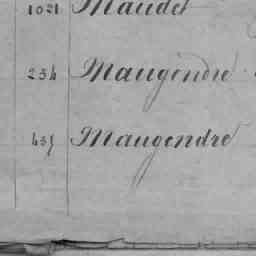 1021 Maudet
234 Maugendre
435 Maugendré